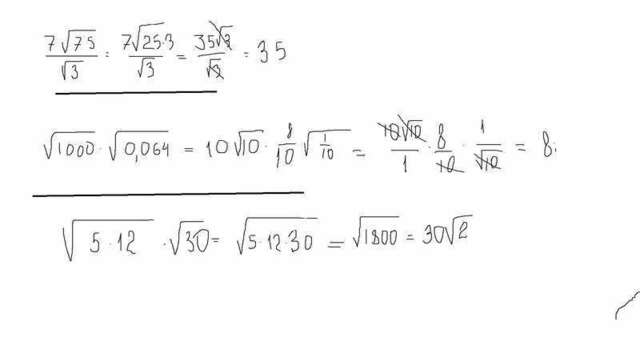 7√75/√3 = 7√25·3/√3 = 35√3/√3 = 35
√1000 · √0,064 = 10√10 · 8/10 √1/10 = 10√10/1 · 8/10 · 1/√10 = 8.
√5·12 · √30 = √5·12·30 = √1800 = 30√2